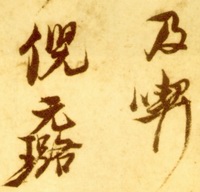 及
倪元璐